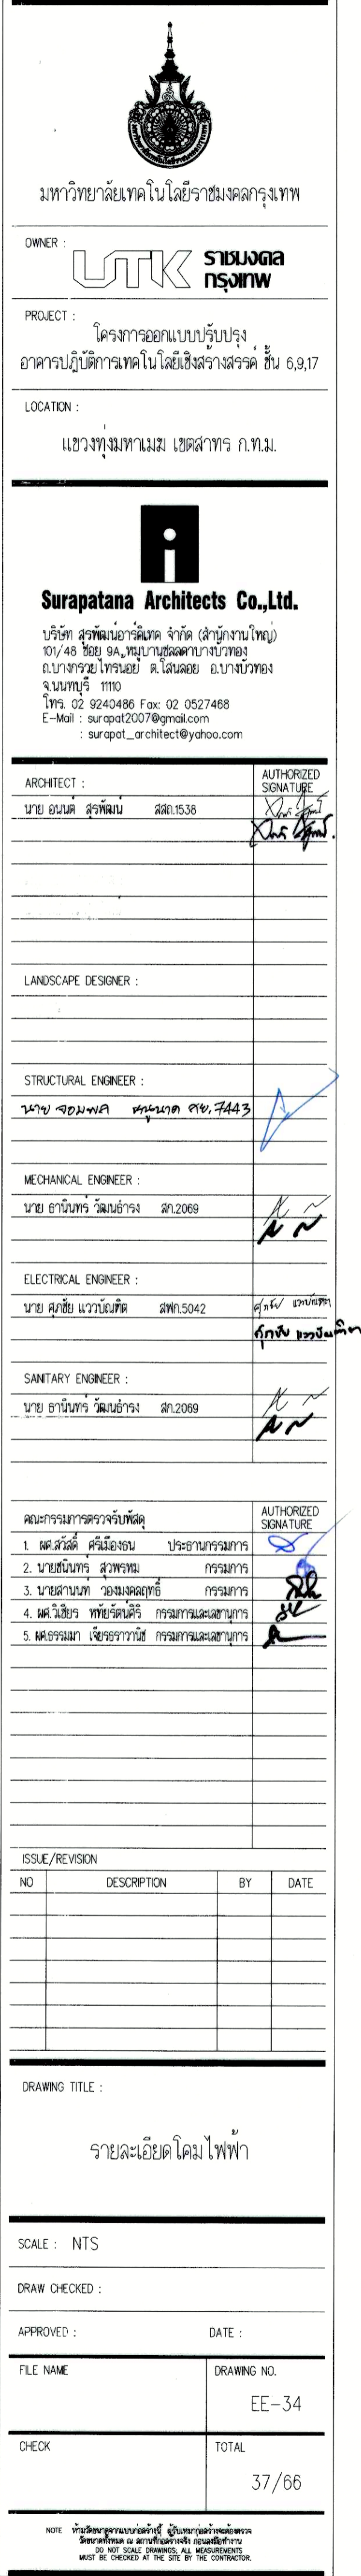 มหาวิทยาลัยเทคโนโลยีราชมงคลกรุงเทพ
OWNER :
UTK ราชมงคล
กรุงเทพ
PROJECT :
โครงการออกแบบปรับปรุง
อาคารปฏิบัติการเทคโนโลยีเชิงสร้างสรรค์ ชั้น 6,9,17
LOCATION :
แขวงทุ่งมหาเมฆ เขตสาทร ก.ท.ม.
Surapatana Architects Co.,Ltd.
บริษัท สุรพัฒน์อาร์คิเทค จำกัด (สำนักงานใหญ่)
101/48 ซอย 9A, หมู่บ้านชลลดาบางบัวทอง
ถ.บางกรวยไทรน้อย ต.โสนลอย อ.บางบัวทอง
จ.นนทบุรี 11110
โทร. 02 9240486 Fax: 02 0527468
E-Mail : surapat2007@gmail.com
: surapat_architect@yahoo.com
ARCHITECT :
AUTHORIZED
SIGNATURE
นาย อนนต์ สุรพัฒน์ สสถ.1538
LANDSCAPE DESIGNER :
STRUCTURAL ENGINEER :
นาย จอมพล 7443
MECHANICAL ENGINEER :
นาย ธานินทร์ วัฒนธำรง สก.2069
ELECTRICAL ENGINEER :
นาย ศุภชัย แววบัณฑิต สฟก.5042
ศุภชัย แววบัณฑิต
ศุภชัย แววบัณฑิต
SANITARY ENGINEER :
นาย ธานินทร์ วัฒนธำรง สก.2069
คณะกรรมการตรวจรับพัสดุ
AUTHORIZED
SIGNATURE
1. ผศ.สวัสดิ์ ศรีเมืองธน ประธานกรรมการ
2. นายชนินทร์ สุวพรหม กรรมการ
3. นายสานนท์ วองมงคลฤทธิ์ กรรมการ
4. ผศ.วิเชียร หทัยรัตน์ศิริ กรรมการและเลขานุการ
5. ผศ.ธรรมมา เจียรธราวานิช กรรมการและเลขานุการ
ISSUE/REVISION
NO DESCRIPTION BY DATE
DRAWING TITLE :
รายละเอียดโคมไฟฟ้า
SCALE : NTS
DRAW CHECKED :
APPROVED : DATE :
FILE NAME DRAWING NO.
EE-34
CHECK TOTAL
37/66
NOTE ห้ามวัดขนาดจากแบบก่อสร้างนี้ ผู้รับเหมาก่อสร้างจะต้องตรวจ
วัดขนาดทั้งหมด ณ สถานที่ก่อสร้างจริง ก่อนลงมือทำงาน
DO NOT SCALE DRAWINGS; ALL MEASUREMENTS
MUST BE CHECKED AT THE SITE BY THE CONTRACTOR.